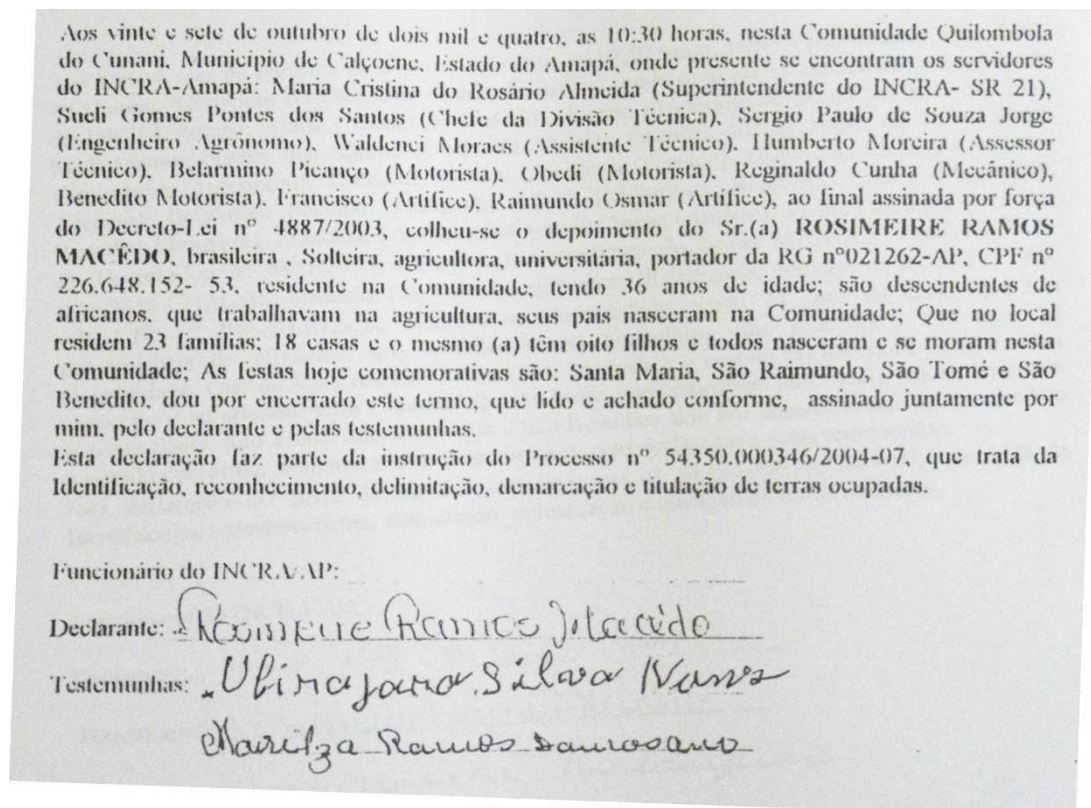 Aos vinte e sete de outubro de dois mil e quatro, as 10:30 horas, nesta Comunidade Quilombola
do Cunani, Município de Calçoene, Estado do Amapá, onde presente se encontram os servidores
do INCRA-Amapá: Maria Cristina do Rosário Almeida (Superintendente do INCRA- SR 21),
Sueli Gomes Pontes dos Santos (Chefe da Divisão Técnica), Sergio Paulo de Souza Jorge
(Engenheiro Agrônomo), Waldenci Moraes (Assistente Técnico), Humberto Moreira (Assessor
Técnico), Belarmino Picanço (Motorista), Obedi (Motorista), Reginaldo Cunha (Mecânico),
Benedito Motorista), Francisco (Artífice), Raimundo Osmar (Artífice), ao final assinada por força
do Decreto-Lei nº 4887/2003, colheu-se o depoimento do Sr.(a) ROSIMEIRE RAMOS
MACÊDO, brasileira , Solteira, agricultora, universitária, portador da RG nº021262-AP, CPF nº
226.648.152- 53, residente na Comunidade, tendo 36 anos de idade; são descendentes de
africanos, que trabalhavam na agricultura, seus pais nasceram na Comunidade; Que no local
residem 23 famílias; 18 casas e o mesmo (a) têm oito filhos e todos nasceram e se moram nesta
Comunidade; As festas hoje comemorativas são: Santa Maria, São Raimundo, São Tomé e São
Benedito, dou por encerrado este termo, que lido e achado conforme, assinado juntamente por
mim, pelo declarante e pelas testemunhas.
Esta declaração faz parte da instrução do Processo nº 54350.000346/2004-07, que trata da
Identificação, reconhecimento, delimitação, demarcação e titulação de terras ocupadas.
Funcionário do INCRA/AP:
Declarante: Ramos Macêdo
Testemunhas: Ubirajara Silva
Marilza Ramos